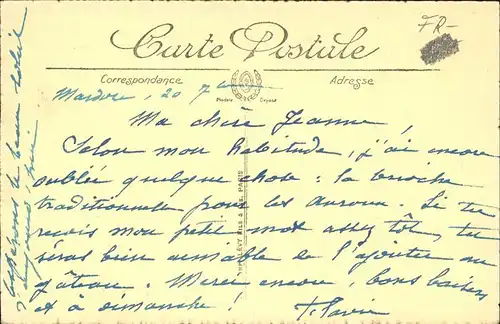 FR-
Carte Postale
Correspondance
Adresse
Modèle Déposé
20 7
Ma chère Jeanne,
Selon mon habitude, j'ai encore
oublié quelque chose : la brioche
traditionnelle pour les Si tu
reçois mon petit mot assez tôt, tu
seras bien aimable de l'ajouter au
gâteau. Merci encore, bons baisers
et à dimanche !
Espérons le beau soleil
FILS & CIE. PARIS